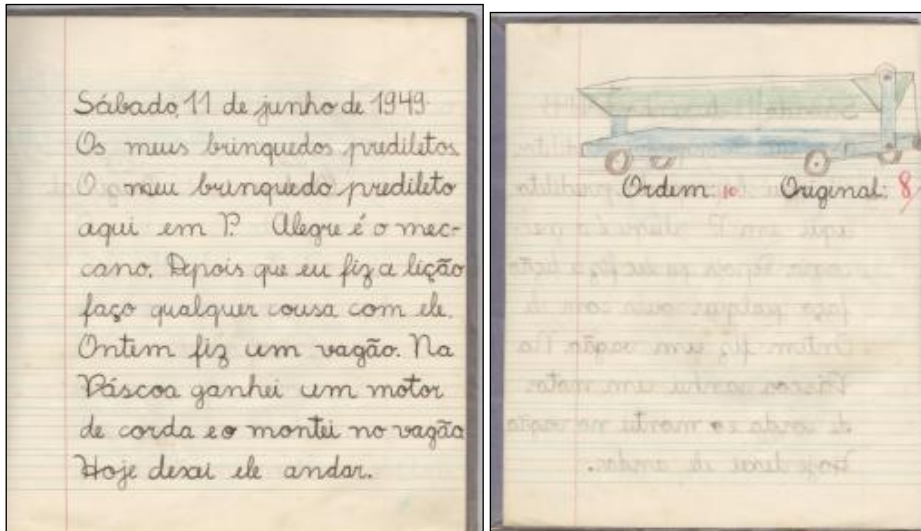 Sábado, 11 de junho de 1949.
Os meus brinquedos prediletos.
O meu brinquedo predileto
aqui em P. Alegre é o mec-
cano. Depois que eu fiz a lição
faço qualquer cousa com ele.
Ontem fiz um vagão. Na
Páscoa ganhei um motor
de corda e o montei no vagão
Hoje dexei ele andar.
Ordem: 10. Original: 8